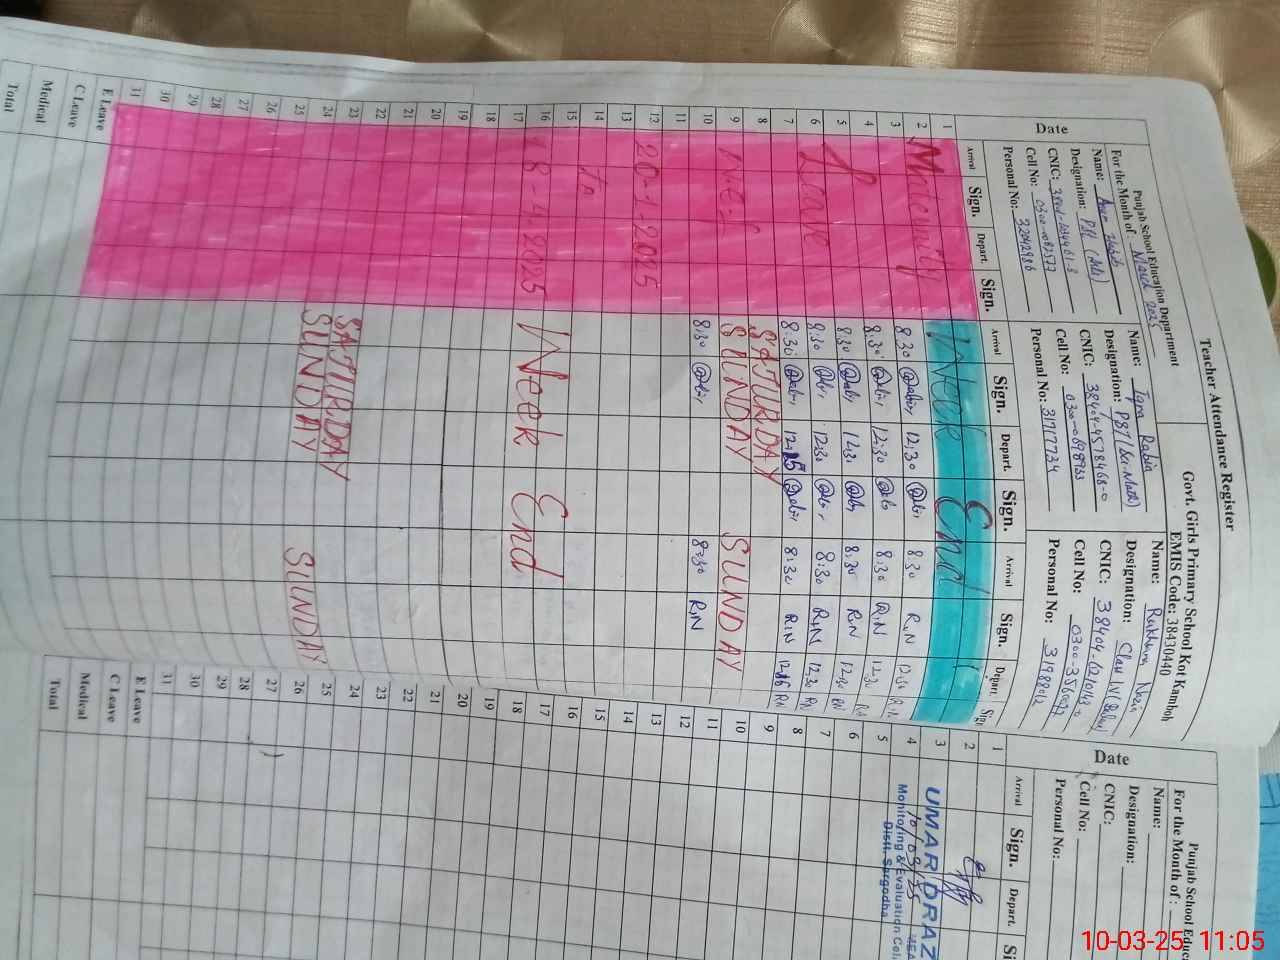 Teacher Attendance Register
Punjab School Education Department
Govt. Girls Primary School Kot Kamboh
For the Month of : March 2025
EMIS Code: 38430440
Date
Name:
Designation: PST (Arts)
CNIC:
Cell No:
Personal No: 32042986
Name: Iqra Rabia
Designation: PST (Sci-Math)
CNIC: 38404-4578468-0
Cell No: 0300-0698933
Personal No: 31717734
Name:
Designation: Class IV
CNIC:
Cell No:
Personal No:
Arrival Sign. Depart. Sign. Arrival Sign. Depart. Sign. Arrival Sign. Depart. Sign
1 Week End
2
3 8.30 12.30 8.30 R.N 12.30 R.N
4 8.30 12.30 8.30 R.N 12.30 R.N
5 8.30 12.30 8.30 R.N 12.30 R.N
6 8.30 12.30 8:30 R.N 12.30 R.N
7 8.30 12.15 8:30 R.N R.N
8 SATURDAY
9 SUNDAY SUNDAY
10 8:30 8:30 R.N
11
12
13
14
15
16 Week End
17
18
19
20
21
22
23 SATURDAY
24 SUNDAY SUNDAY
25
26
27
28
29
30
31
E Leave
C Leave
Medical
Total
Maternity
Leave
W.e.f
20-1-2025
to
8-4-2025
Punjab School Educa
For the Month of :
Name:
Designation:
CNIC:
Cell No:
Personal No:
Date
Arrival Sign. Depart. Si
1
2
3
4
5
6
7
8
9
10
11
12
13
14
15
16
17
18
19
20
21
22
23
24
25
26
27
28
29
30
31
E Leave
C Leave
Medical
Total
UMAR DRAZ
10/03/25
Monitoring & Evaluation Cell
Distt. Sargodha
10-03-25 11:05